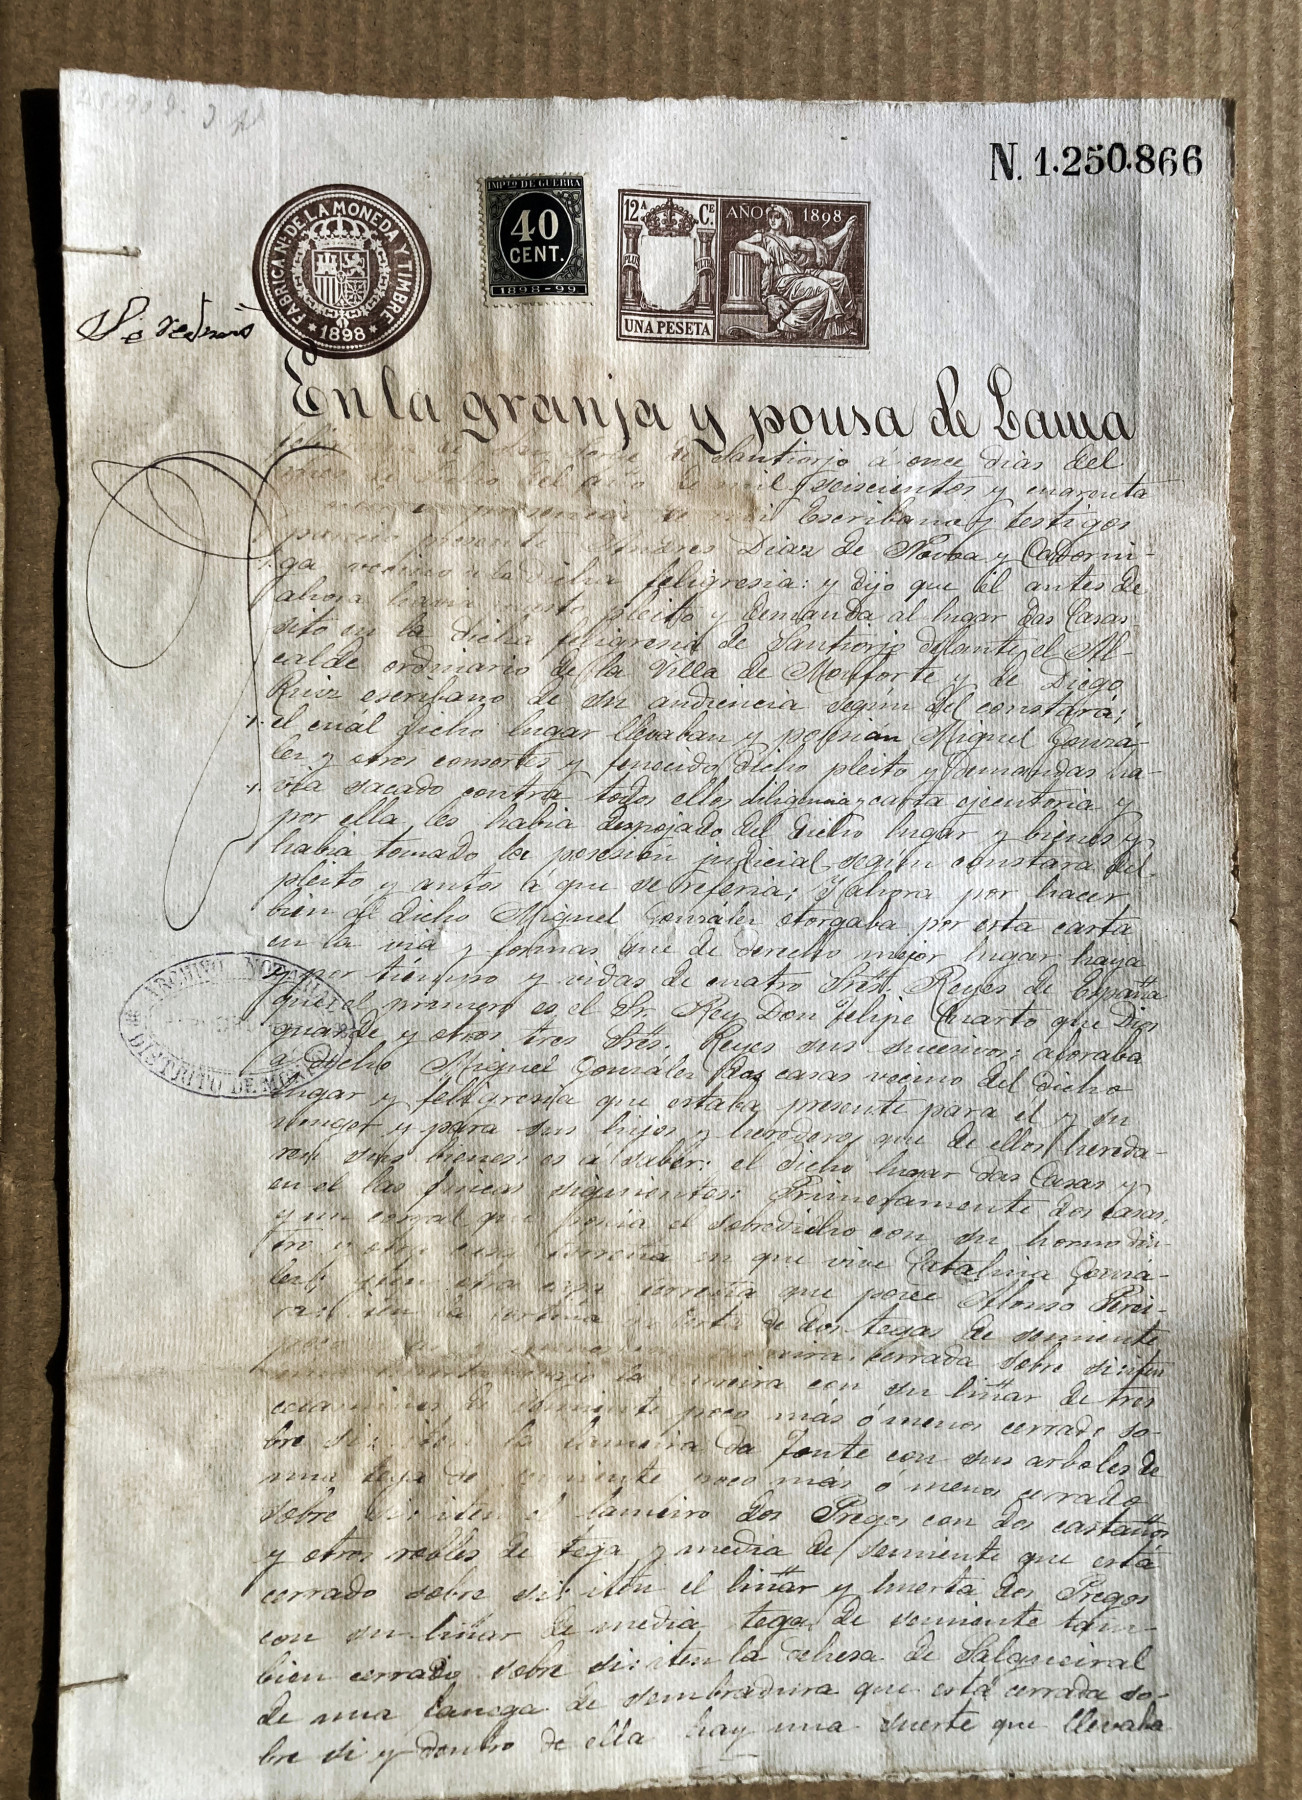 N. 1.250.866
IMPTO DE GUERRA
40
CENT.
1898-99
12A CE.
AÑO 1898
PLUS ULTRA
UNA PESETA
FABRICA NL. DE LA MONEDA Y TIMBRE
* 1898 *
En la granja y pousa de Lama
de Santiorjo á once dias del
del año de mil seiscientos y cuarenta
presencia de mi Escribano y testigos
presente Andres Diaz de Novoa y Cadorni-
ga vecino de la dicha feligresia: y dijo que él antes de
ahora havia puesto pleito y demanda al lugar das Casas
sito en la dicha feligresia de Santiorjo delante el Al-
calde ordinario de la Villa de Monforte y de Diego
Ruiz escribano de su audiencia según del constara;
el cuál dicho lugar llevaban y poseián Miguel Gonzá-
lez y otros consortes y fenecido dicho pleito y demandas ha-
via sacado contra todos ellos diligencia y carta ejecutoria y
por ella les habia despojado del dicho lugar y bienes y
habia tomado la posesión judicial según constara del
pleito y autos á que se referia; Y ahora por hacer
bien al dicho Miguel González otorgaba por esta carta
en la via y formas que de derecho mejor lugar haya
y por tiempo y vidas de cuatro Srēs. Reyes de España
que el primero es el Sr. Rey Don Felipe Cuarto que Dios
guarde y otros tres Srēs. Reyes sus sucesivos; aforaba
a dicho Miguel González das casas vecino del dicho
lugar y feligresia que estaba presente para él y su
muger y para sus hijos y herederos que de ellos hereda-
ren sus bienes: es a saber: el dicho lugar das Casas y
en el las fincas siguientes: Primeramente dos casas
y un corral que posiia el sobredicho con su horno den-
tro y otra casa terreña en que vive Catalina Gonzá-
lez; iten otra casa terreña que posee Alonso Perei-
ras: iten la cortiña de dos tegas de semiente
cerrada sobre si: iten
con su liñar de tres
de semiente poco más ó menos cerrado so-
bre si: iten la lameira da Fonte con sus arboles de
una tega de semiente poco más ó menos cerrado
sobre si: iten el lameiro dos Pregos con dos castaños
y otros robles de tega y media de semiente que está
cerrado sobre si: iten el liñar y huerta dos Pregos
con su liñar de media tega de semiente tam-
bien cerrado sobre si: iten la dehesa de Salgueiral
de una fanega de sembradura que está cerrada so-
bre si y dentro de ella hay una suerte que llevaba
ARCHIVO NOTARIAL
DISTRITO DE MON